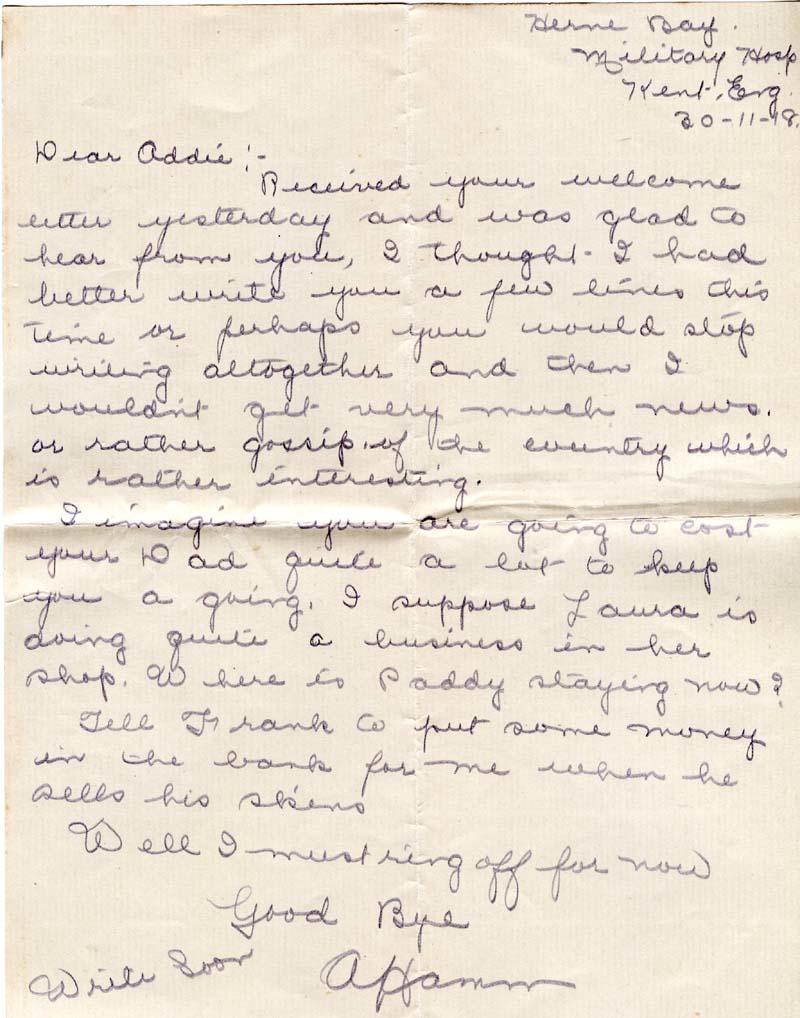 Herne Bay.
Military Hosp
Kent, Eng.
30-11-18.
Dear Addie :-
Received your welcome
etter yesterday and was glad to
hear from you, I thought I had
better write you a few lines this
time or perhaps you would stop
writing altogether and then I
wouldn't get very much news.
or rather gossip. of the country which
is rather interesting.
I imagine you are going to cost
your Dad quite a lot to keep
you a going. I suppose Laura is
doing quite a business in her
shop. Where is Paddy staying now?
Tell Frank to put some money
in the bank for me when he
sells his skins
Well I must ring off for now
Good Bye
Write Soon
A Hamm